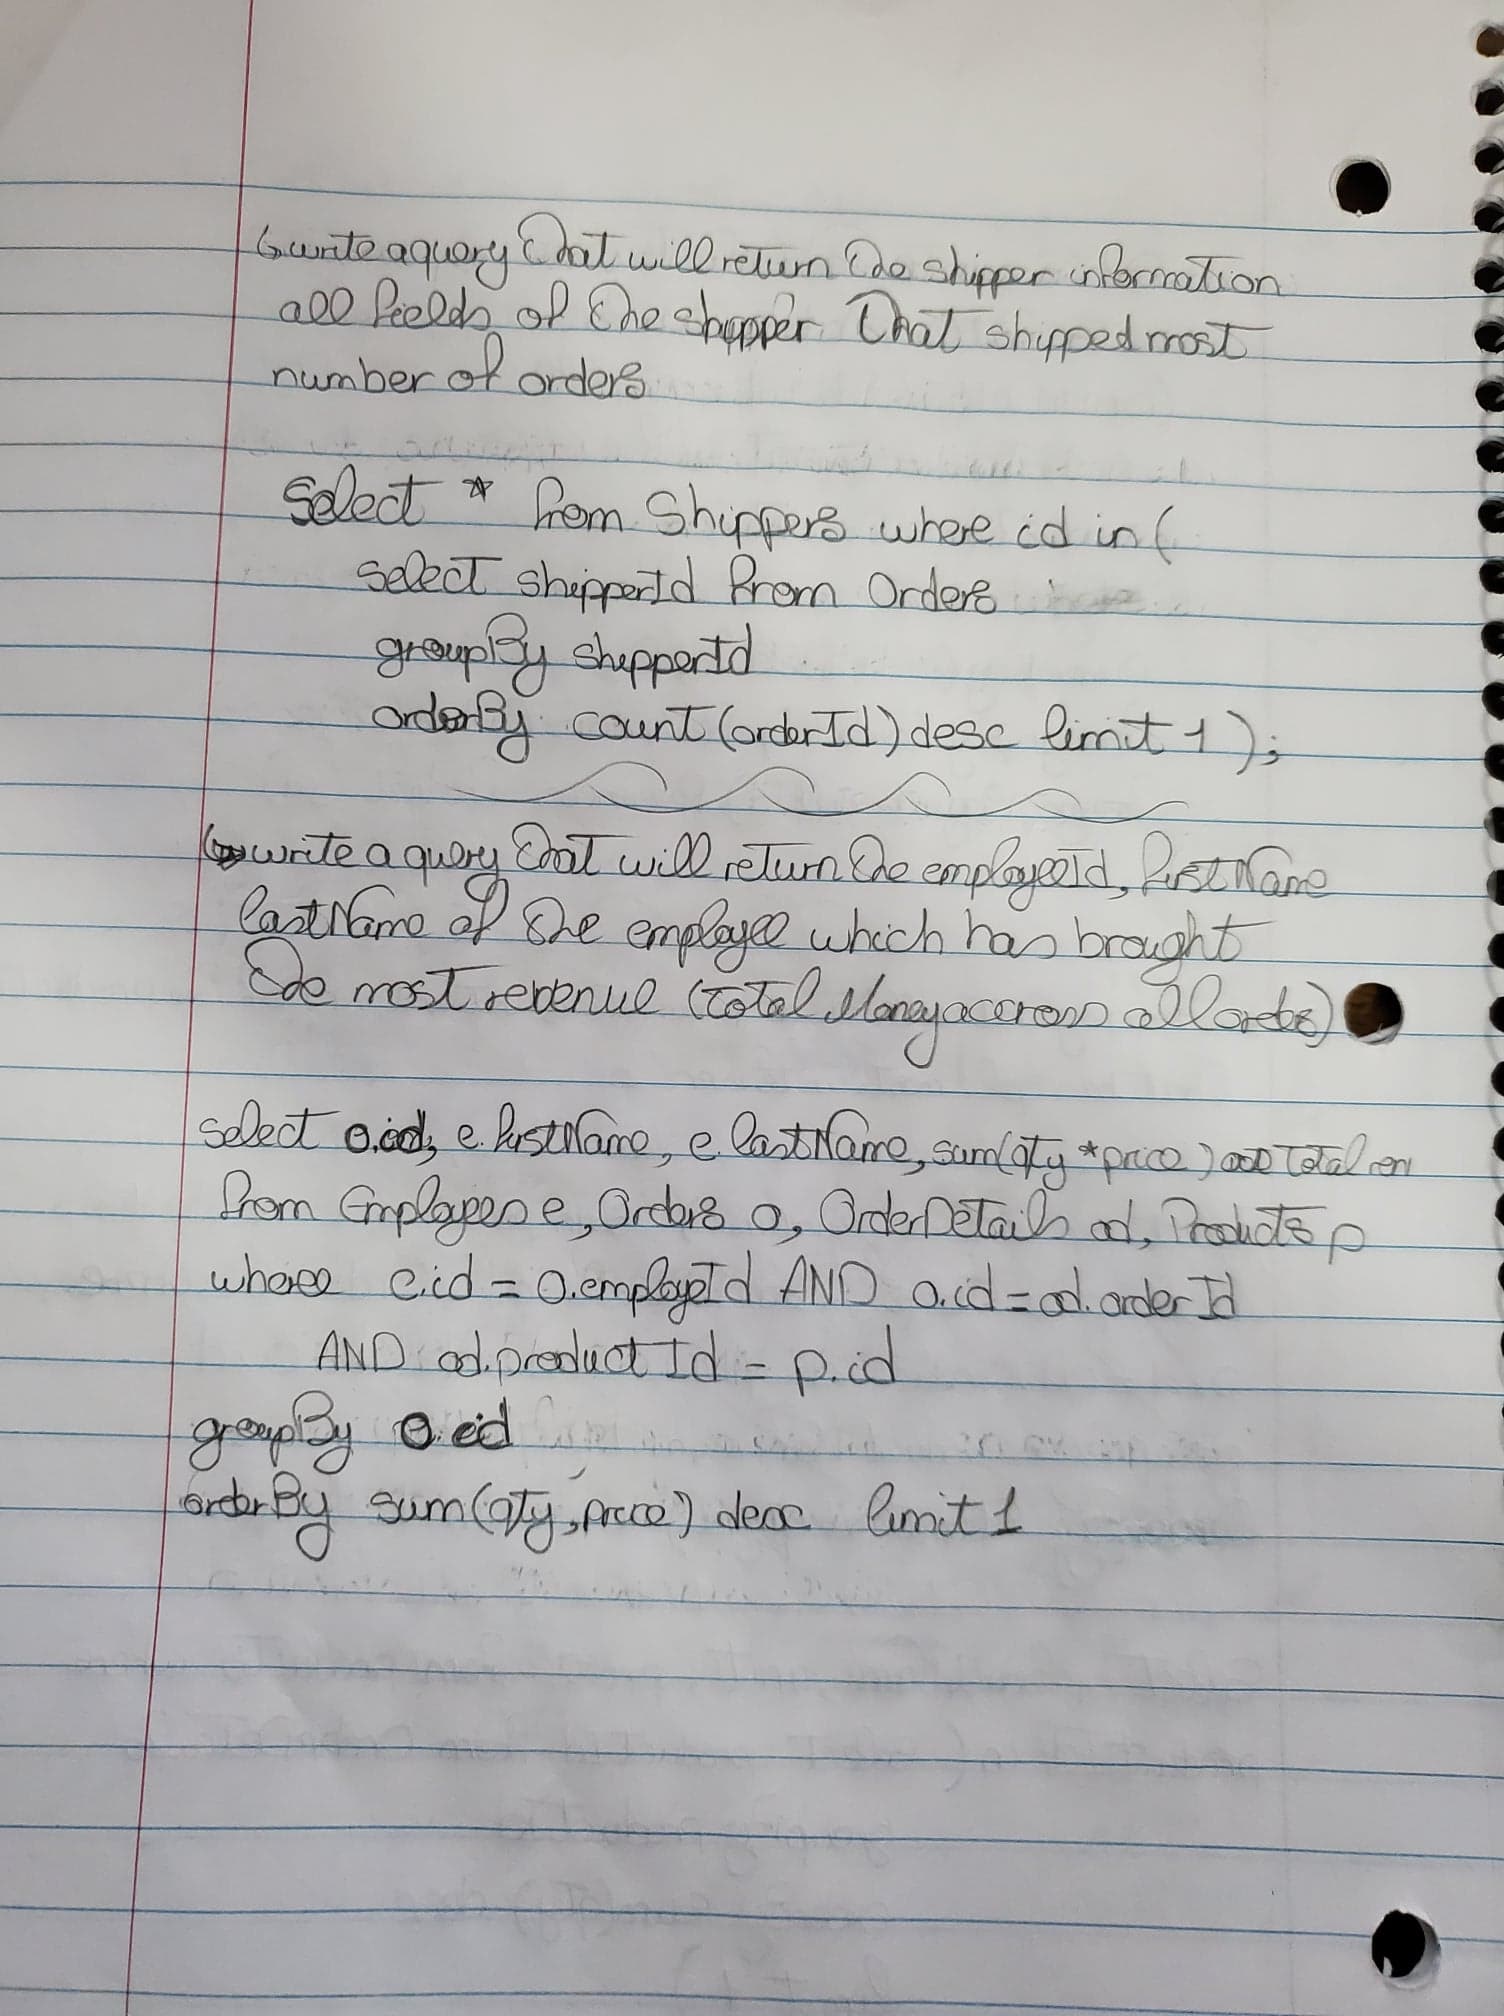 ↳ write a query that will return the shipper information
all fields of the shipper that shipped most
number of orders
Select * from Shippers where id in (
select shipperId from Orders
groupBy shipperId
orderBy count (orderId) desc limit 1 );
↳ write a query that will return the employeeId, firstName
lastName of the employee which has brought
the most revenue (total Money accross all orders)
select id, e.firstName, e.lastName, sum(qty * price) Total
from Employees e, Orders o, OrderDetails od, Products p
where e.id = o.employeId AND o.id = od.orderId
AND od.productId = p.id
groupBy id
orderBy sum(qty, price) desc limit 1